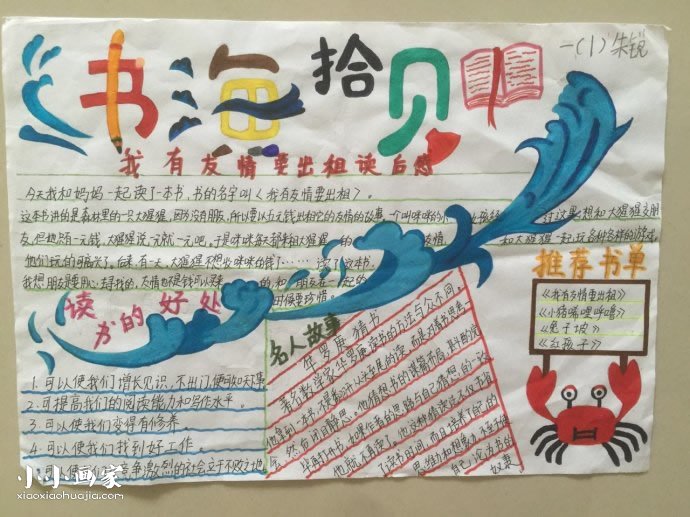 书海拾贝
一(1)朱锐
我有友情要出租读后感
今天我和妈妈一起读了一本书,书的名字叫《我有友情要出租》。
这本书讲的是森林里的一只大猩猩,因为没有朋友,所以要以五元钱出租它的友情的故事。一个叫咪咪的小 想和大猩猩交朋
友,但她只有一元钱,大猩猩说,一元就一元吧,于是咪咪每天都来租大猩猩 的 友情, 和大猩猩一起玩各种各样的游戏,
他们玩的可高兴了。后来有一天,大猩猩不想收咪咪的钱了……读了这本书
我想朋友是要用心去寻找的,友情也不是钱可以买来 的 和朋友在一起的
时候要珍惜。
推荐书单
《我有友情要出租》
《小猪唏哩呼噜》
《兔子坡》
《红孩子》
读书的好处
1.可以使我们增长见识,不出门便知天下事
2.可提高我们的阅读能力和写作水平。
3.可以使我们变得有修养。
4.可以使我们找到好工作。
5.可以使我们在竞争激烈的社会立于不败之地
名人故事
华罗庚猜书
著名数学家华罗庚读书的方法与众不同。
他拿到一本书,不是翻开从头至尾的读,而是对着书思考一
会,然后闭目静思。他猜想书的谋篇布局,
再打开书,如果作者的思路与自己猜想的一致,
他就不再读了。他这种猜读法不仅节省
了读书时间,而且培养了自己的
思维力和想象力,不至于使
自己沦为书的
奴隶
小小画家
xiaoxiaohuajia.com